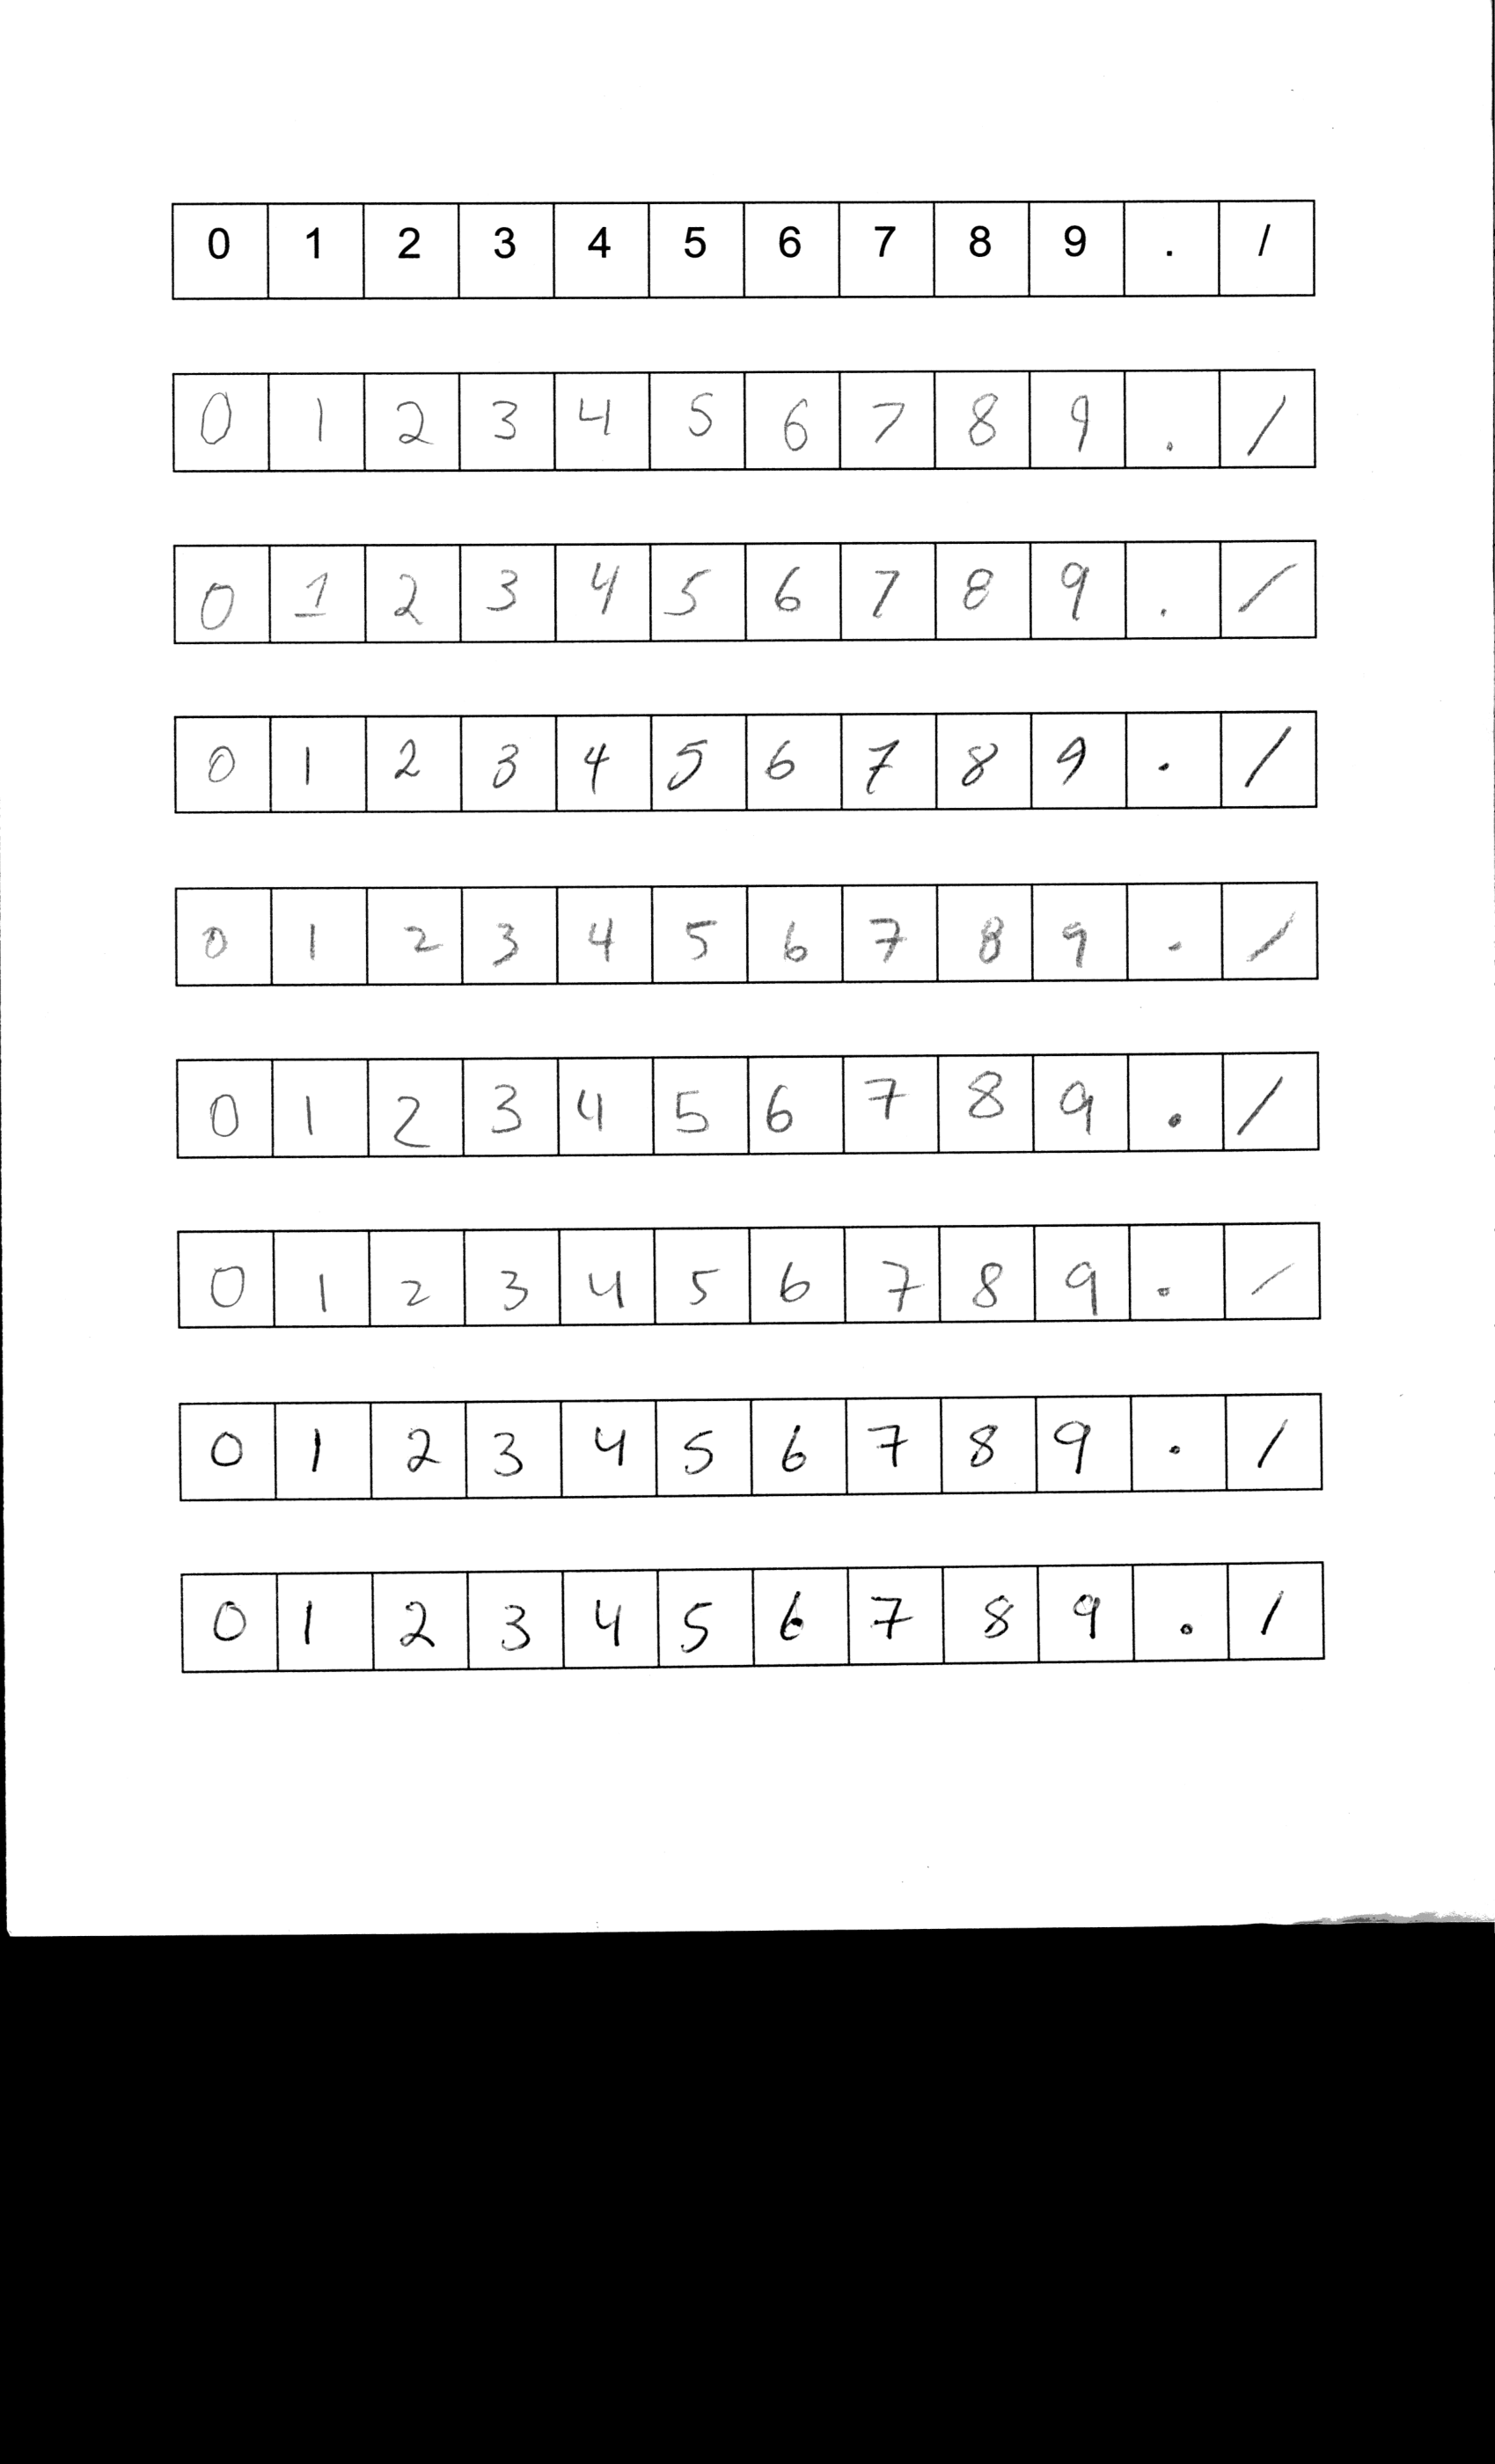 0 1 2 3 4 5 6 7 8 9 . /
0 1 2 3 4 5 6 7 8 9 . /
0 1 2 3 4 5 6 7 8 9 . /
0 1 2 3 4 5 6 7 8 9 . /
0 1 2 3 4 5 6 7 8 9 . /
0 1 2 3 4 5 6 7 8 9 . /
0 1 2 3 4 5 6 7 8 9 . /
0 1 2 3 4 5 6 7 8 9 . /
0 1 2 3 4 5 6 7 8 9 . /